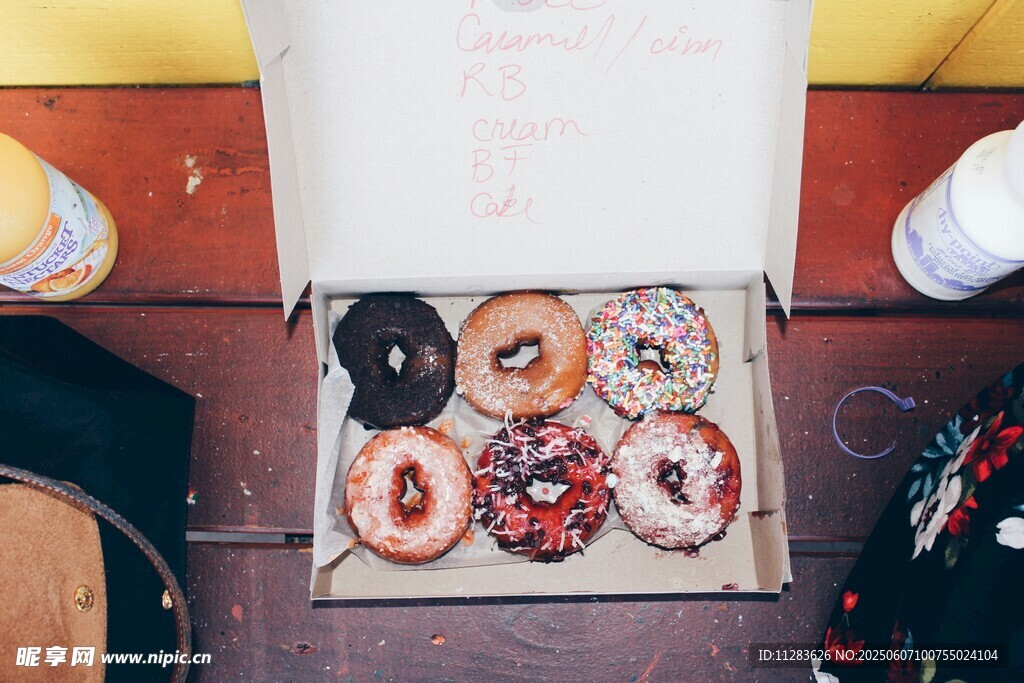 Caramel / cinn
RB
cream
BT
Cake
NANTUCKET
NECTARS
昵享网 www.nipic.cn
ID:11283626 NO:20250607100755024104